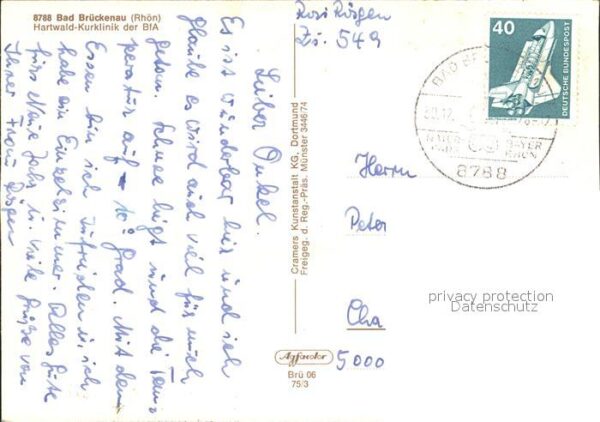 8788 Bad Brückenau (Rhön)
Hartwald-Kurklinik der BfA
Lieber Onkel.
Es ist wunderbar hier und ich
glaube es wird auch viel für mich
getan. Schnee liegt und die Tem-
peratur auf - 10° Grad. Mit dem
Essen bin ich zufrieden u. ich
habe ein Einzelzimmer. Alles Gute
fürs Neue Jahr u. viele Grüße von
Ihrer Frau Rösgen
Cramers Kunstanstalt KG, Dortmund
Freigeg. d. Reg.-Präs. Münster 3446/74
Agfacolor
Brü 06
75/3
Rosi Rösgen
Zi. 549
40
DEUTSCHE BUNDESPOST
BAD
8788
Herrn
Peter
Cha
5000
privacy protection
Datenschutz